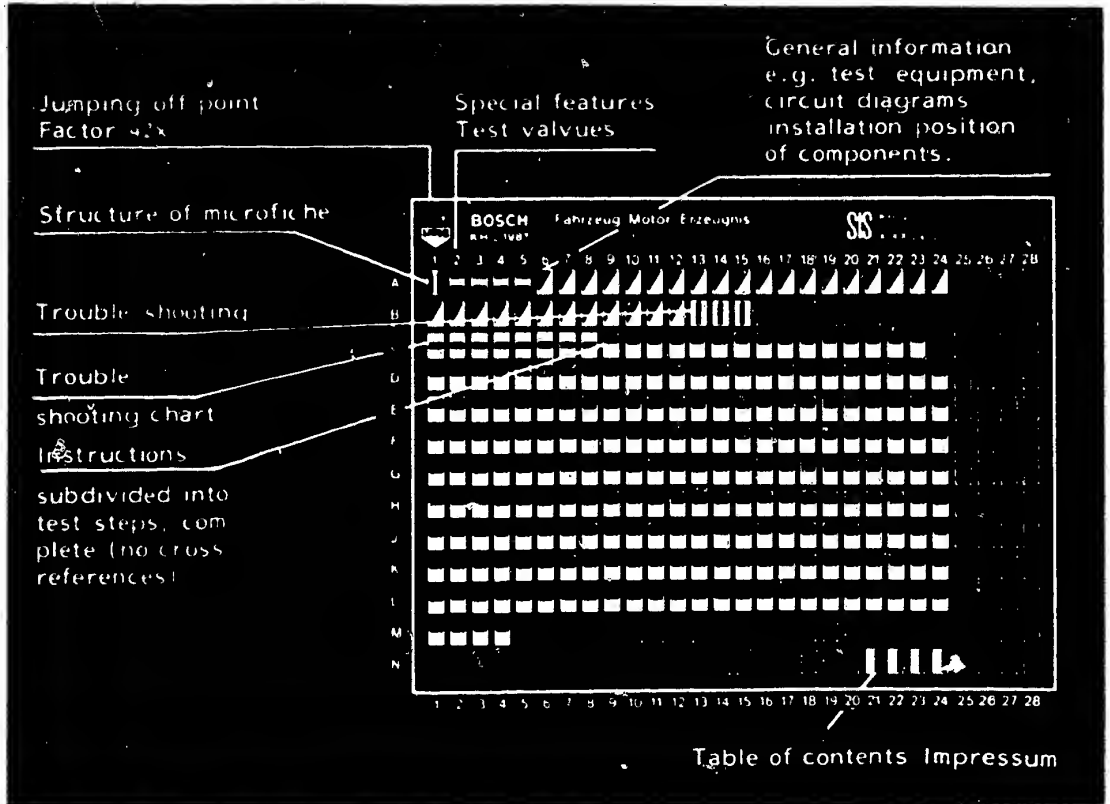 Jumping off point
Factor 42x
Special features
Test valvues
General information
e.g. test equipment,
circuit diagrams
installation position
of components.
Structure of microfiche
Trouble shooting
Trouble
shooting chart
Instructions
subdivided into
test steps, com
plete (no cross
references)
BOSCH
Fahrzeug Motor Erzeugnis
SIS
1 2 3 4 5 6 7 8 9 10 11 12 13 14 15 16 17 18 19 20 21 22 23 24 25 26 27 28
A
B
D
E
F
G
H
J
K
L
M
N
1 2 3 4 5 6 7 8 9 10 11 12 13 14 15 16 17 18 19 20 21 22 23 24 25 26 27 28
Table of contents Impressum